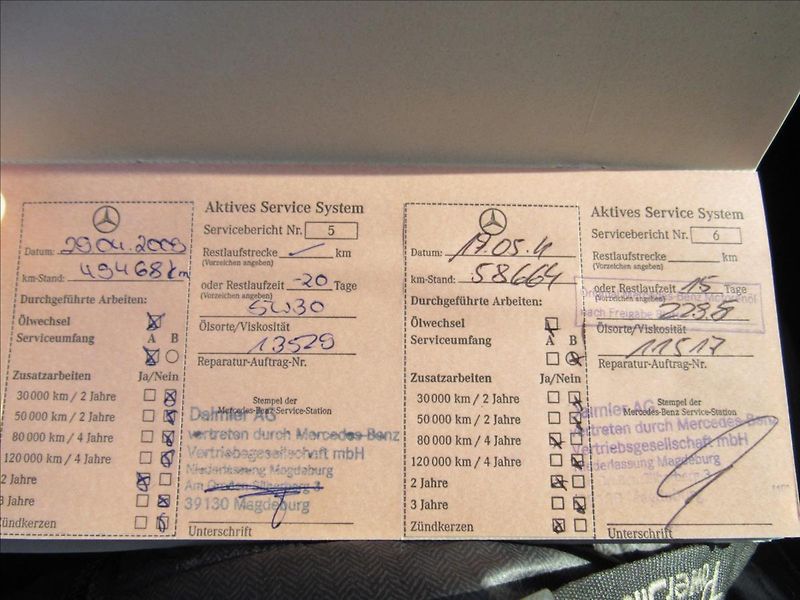 Aktives Service System
Servicebericht Nr. 5
Datum: 29.04.2009
Restlaufstrecke km
(Vorzeichen angeben)
km-Stand: 49468 km
oder Restlaufzeit -20 Tage
(Vorzeichen angeben)
Durchgeführte Arbeiten:
5W30
Ölwechsel
Ölsorte/Viskosität
Serviceumfang A B
13529
Reparatur-Auftrag-Nr.
Zusatzarbeiten Ja/Nein
30 000 km / 2 Jahre
50 000 km / 2 Jahre
80 000 km / 4 Jahre
120 000 km / 4 Jahre
2 Jahre
3 Jahre
Zündkerzen
Stempel der
Mercedes-Benz Service-Station
Daimler AG
vertreten durch Mercedes-Benz
Vertriebsgesellschaft mbH
Niederlassung Magdeburg
Am Großen Silberberg 3
39130 Magdeburg
Unterschrift
Aktives Service System
Servicebericht Nr. 6
Datum: 17.05.11
Restlaufstrecke km
(Vorzeichen angeben)
km-Stand: 58664
oder Restlaufzeit 15 Tage
(Vorzeichen angeben)
Durchgeführte Arbeiten:
nach Freigabe
Ölwechsel
Ölsorte/Viskosität
Serviceumfang A B
11517
Reparatur-Auftrag-Nr.
Zusatzarbeiten Ja/Nein
30 000 km / 2 Jahre
50 000 km / 2 Jahre
80 000 km / 4 Jahre
120 000 km / 4 Jahre
2 Jahre
3 Jahre
Zündkerzen
Stempel der
Mercedes-Benz Service-Station
Daimler AG
vertreten durch Mercedes-Benz
Vertriebsgesellschaft mbH
Niederlassung Magdeburg
Unterschrift